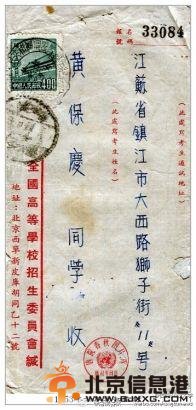 名號
33084
中國人民郵政
400
江蘇省鎮江市大西路獅子街11號
(此處寫考生通訊地址)
黃保慶 同學 收
(此處寫考生姓名)
全國高等學校招生委員會緘
地址:北京西單新皮庫胡同乙十二號
北京信息港